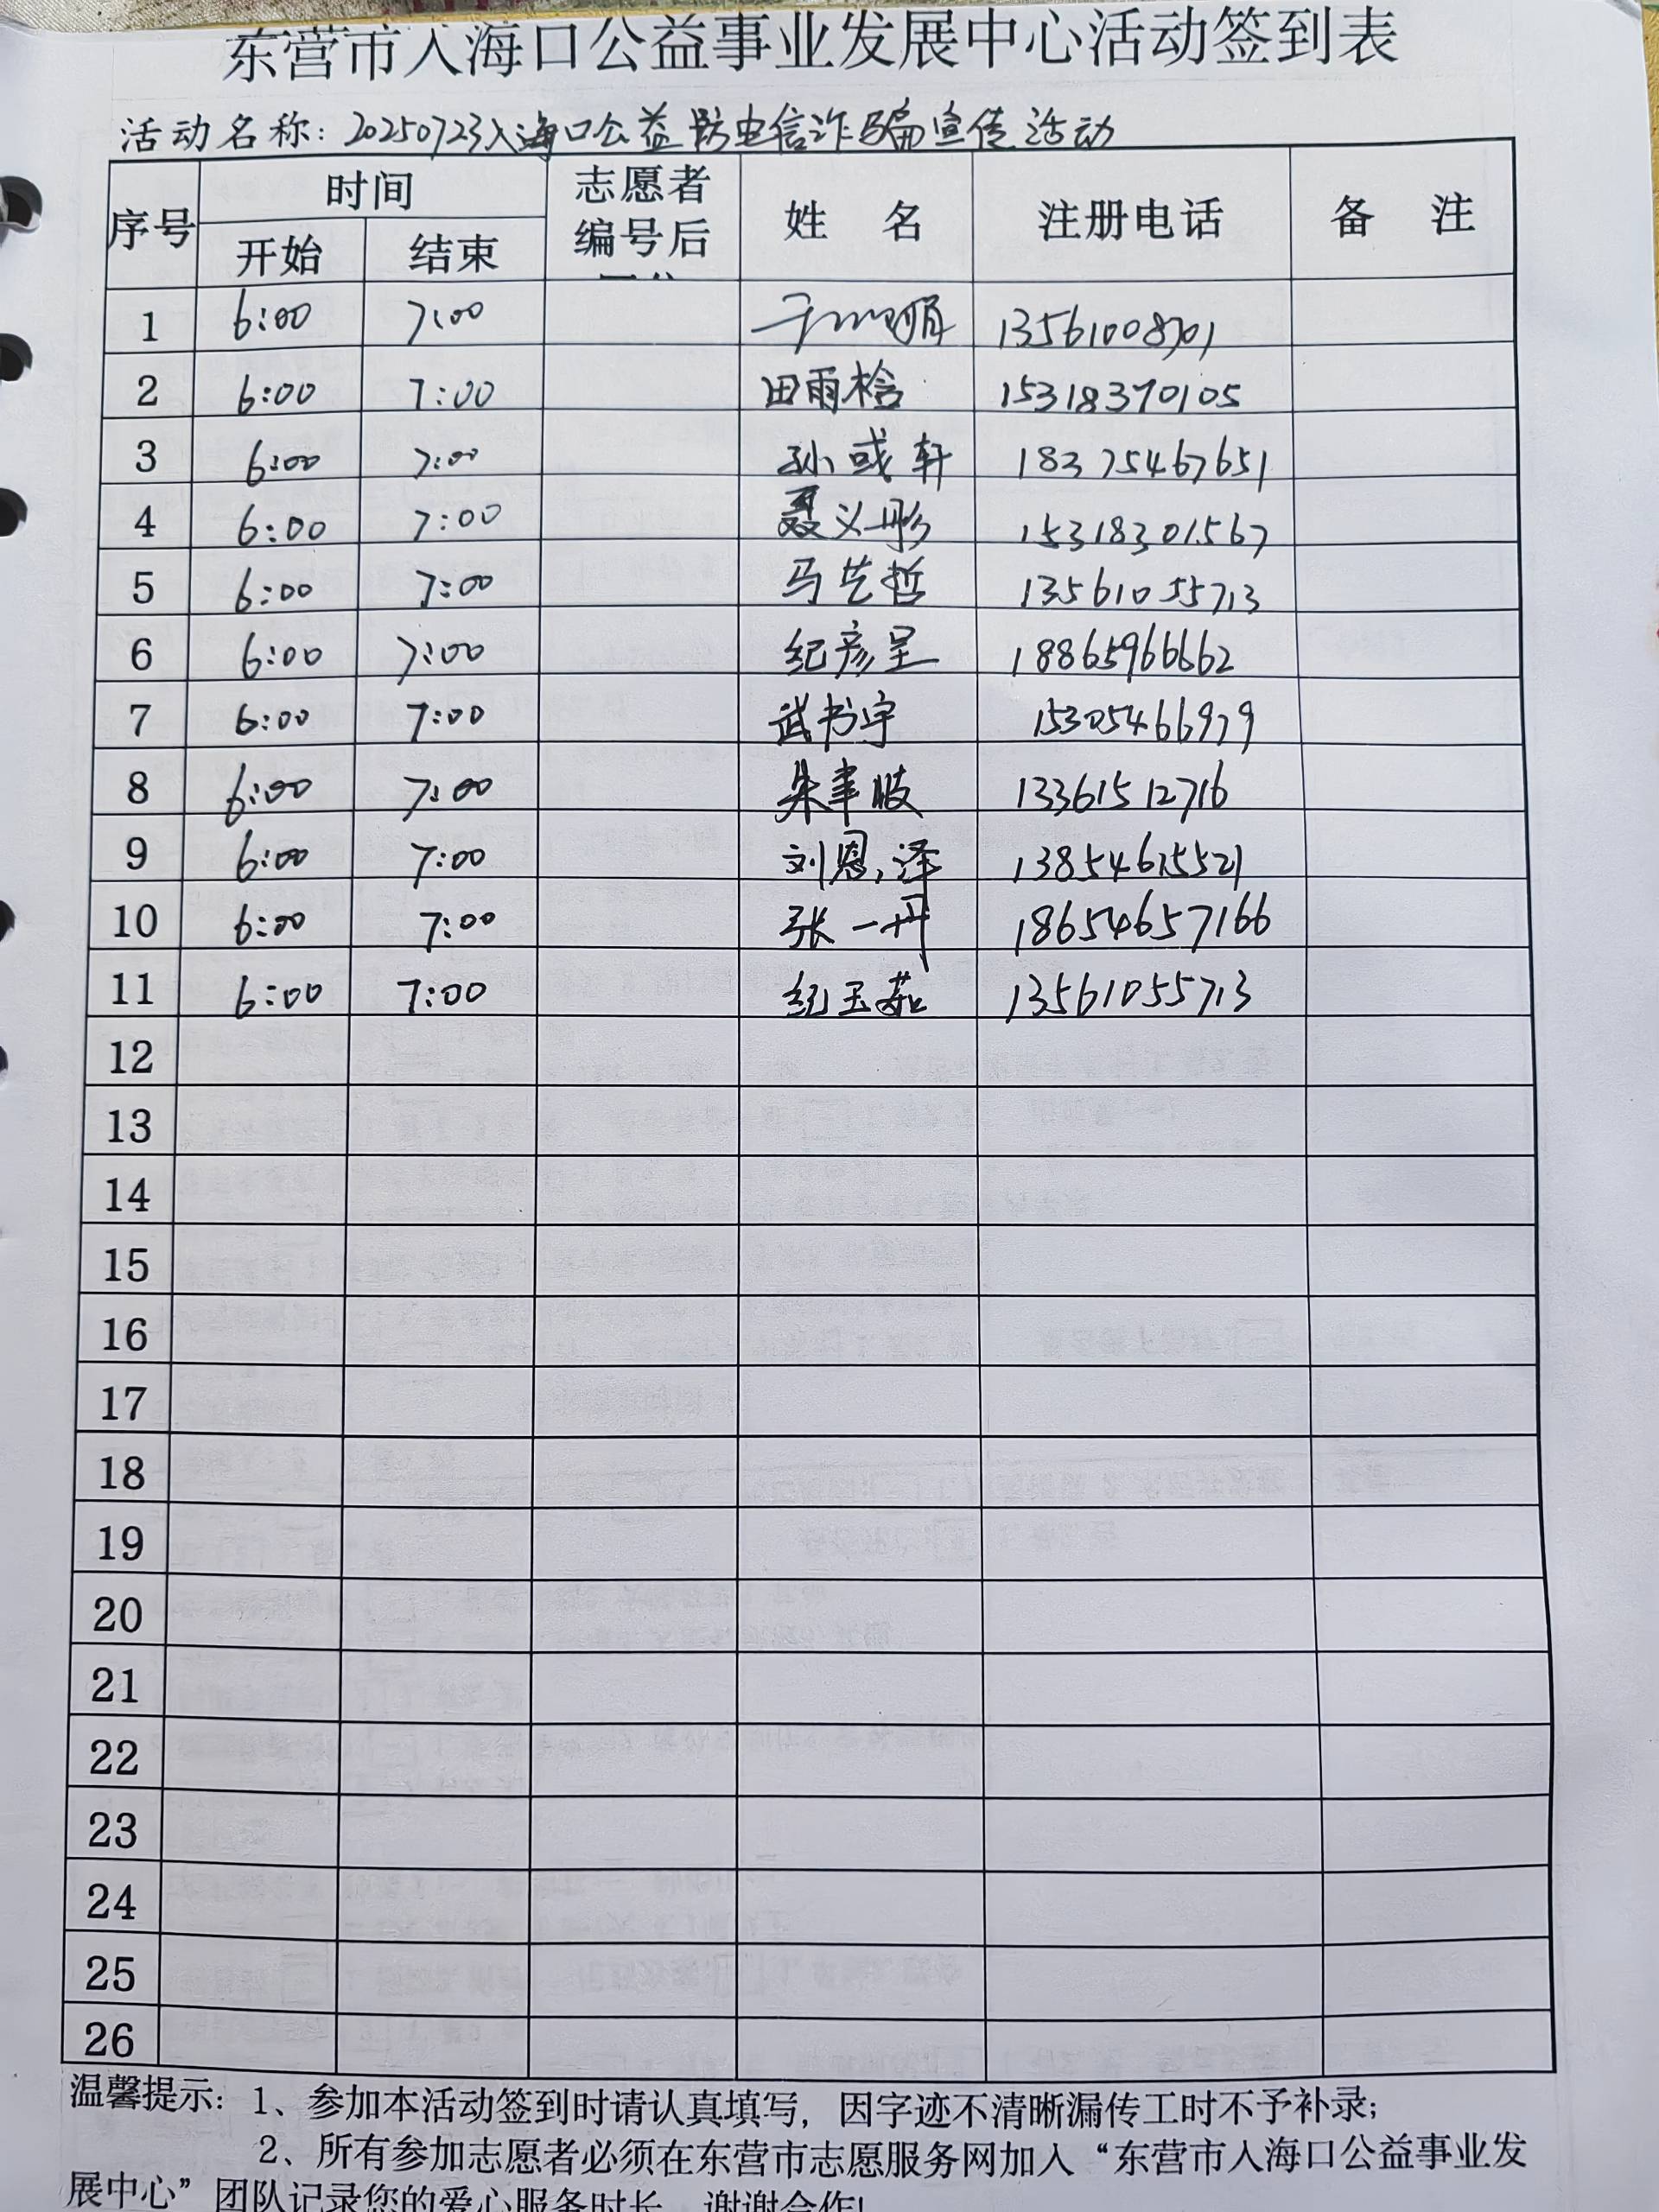 东营市入海口公益事业发展中心活动签到表
活动名称：20250723入海口公益防电信诈骗宣传活动
序号 时间 志愿者编号后 姓 名 注册电话 备 注
开始 结束
1 6:00 7:00 13561008701
2 6:00 7:00 田雨桧 15318370105
3 6:00 7:00 孙彧轩 18375467651
4 6:00 7:00 聂义彤 15318301567
5 6:00 7:00 马艺哲 13561055713
6 6:00 7:00 纪彦呈 18865966662
7 6:00 7:00 武书宇 15305466979
8 6:00 7:00 朱 13361512716
9 6:00 7:00 刘恩泽 13854615521
10 6:00 7:00 张一丹 18654657166
11 6:00 7:00 纪玉茹 13561055713
12
13
14
15
16
17
18
19
20
21
22
23
24
25
26
温馨提示：1、参加本活动签到时请认真填写，因字迹不清晰漏传工时不予补录；
2、所有参加志愿者必须在东营市志愿服务网加入“东营市入海口公益事业发
展中心”团队记录您的爱心服务时长，谢谢合作!